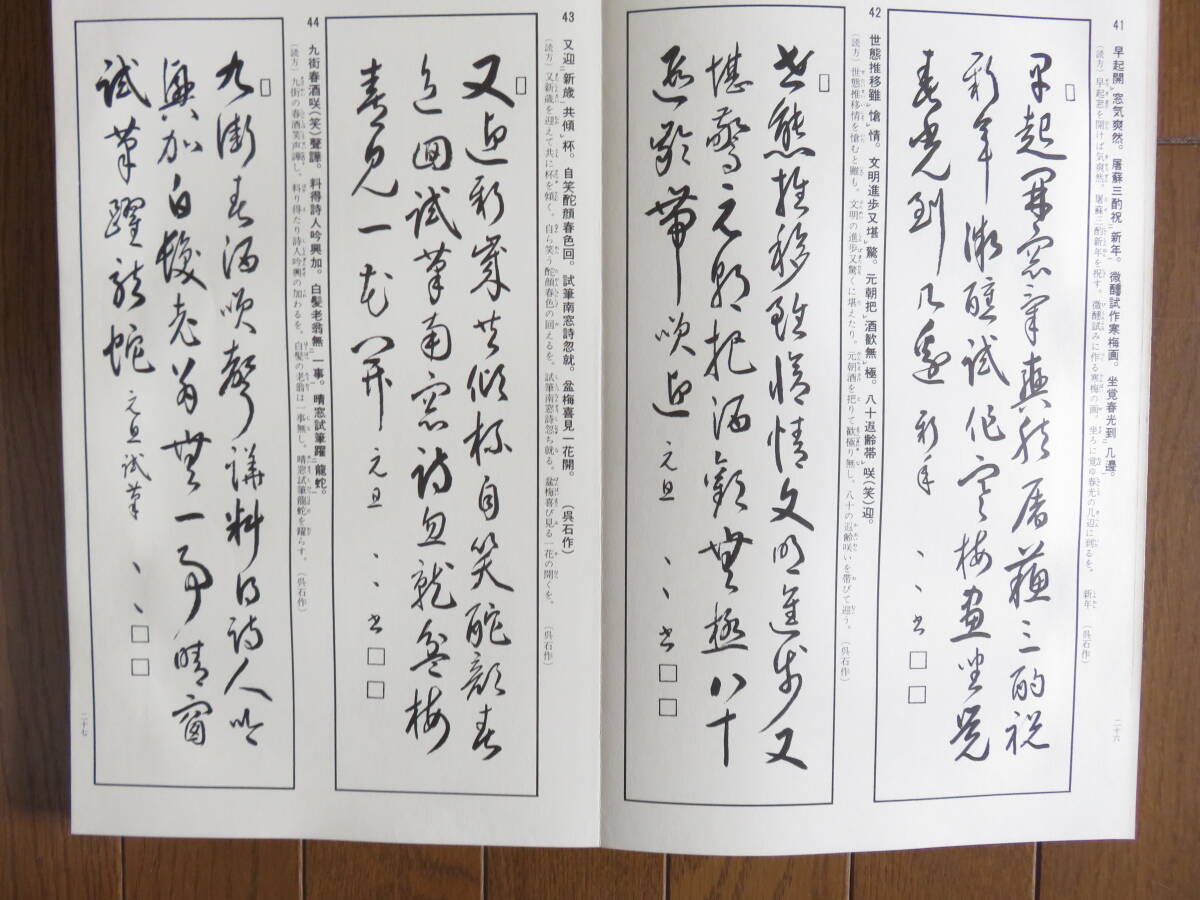 41 早起開㆑窓気爽然。屠蘇三酌祝㆓新年㆒。微醺試作寒梅画。坐覚春光到㆓几邊㆒。
(読方) 早起窓を開けば気爽然。屠蘇三酌新年を祝す。微醺試みに作る寒梅の画。坐ろに覚ゆ春光の几辺に到るを。 新年 (呉石作)
早起開窓气爽然屠蘇三酌祝
新年微醺試作寒梅画坐覚
春光到几邊 新年 、、書□□
二十六
42 世態推移雖㆑愴㆑情。文明進歩又堪㆑驚。元朝把㆑酒歓無㆑極。八十返齢帯㆑咲(笑)迎。
(読方) 世態推移情を愴むと雖も。文明の進歩又驚くに堪えたり。元朝酒を把りて歓極り無し。八十の返齢咲いを帯びて迎う。 (呉石作)
世態推移雖愴情文明進歩又
堪驚元朝把酒歓無極八十
返齢帯咲迎 元旦 、、書□□
43 又迎㆓新歳㆒共傾㆑杯。自笑酡顔春色回。試筆南窓詩忽就。盆梅喜見一花開。 (呉石作)
(読方) 又新歳を迎えて共に杯を傾く。自ら笑う酡顔春色の回えるを。試筆南窓詩忽ち就る。盆梅喜び見る一花の開くを。 (呉石作)
又迎新歳共傾杯自笑酡顔春
色回試筆南窓詩忽就盆梅
喜見一花開 元旦 、、書□□
44 九街春酒咲(笑)聲譁。料得詩人吟興加。白髪老翁無㆓一事㆒。晴窓試筆躍㆓龍蛇㆒。
(読方) 九街の春酒笑声譁し。料り得たり詩人吟興の加わるを。白髪の老翁は一事無し。晴窓試筆龍蛇を躍らす。 (呉石作)
九街春酒咲聲譁料得詩人吟
興加白髪老翁無一事晴窗
試筆躍龍蛇 元旦試筆 、、□□
二十七